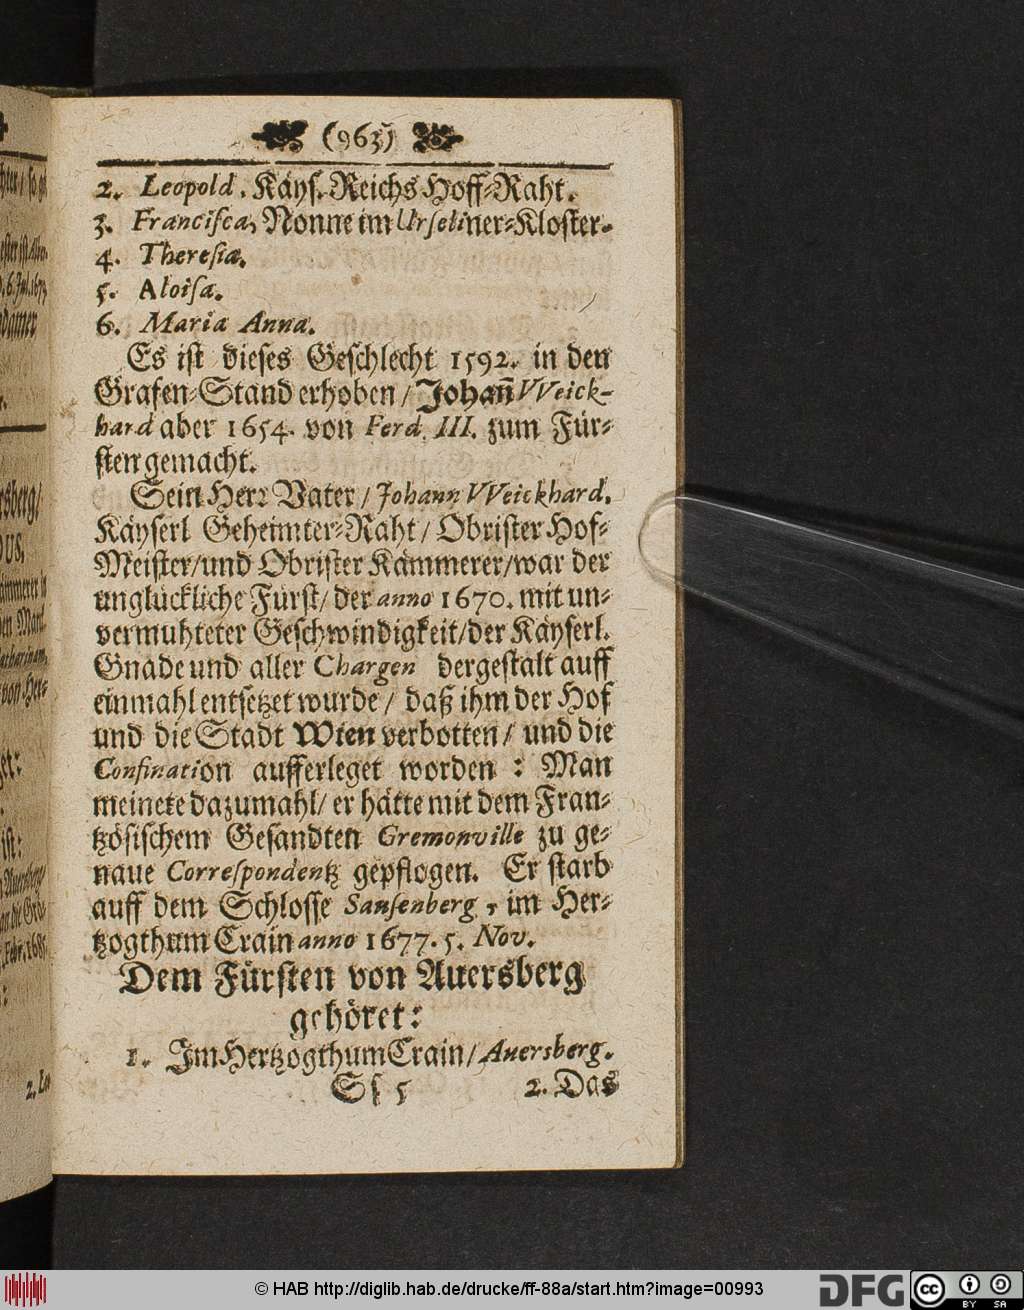 (963)
2. Leopold. Käys. Reichs Hoff-Raht.
3. Francisca, Nonne im Urseliner-Kloster.
4. Theresia.
5. Aloisa.
6. Maria Anna.
Es ist dieses Geschlecht 1592. in den
Grafen-Stand erhoben / Johan̄ VVeick-
hard aber 1654. von Ferd. III. zum Für-
sten gemacht.
Sein Herr Vater / Johann VVeickhard.
Käyserl Geheimter-Raht / Obrister Hof-
Meister/und Obrister Kämmerer/war der
unglückliche Fürst/ der anno 1670. mit un-
vermuhteter Geschwindigkeit/der Käyserl.
Gnade und aller Chargen dergestalt auff
einmahl entsetzet wurde / daß ihm der Hof
und die Stadt Wien verbotten / und die
Confination aufferleget worden : Man
meinete dazumahl/ er hätte mit dem Fran-
tzösischem Gesandten Gremonville zu ge-
naue Correspondentz gepflogen. Er starb
auff dem Schlosse Sausenberg, im Her-
tzogthum Crain anno 1677. 5. Nov.
Dem Fürsten von Auersberg
gehöret:
1. Im Hertzogthum Crain / Auersberg.
Ss 5 2. Das
© HAB http://diglib.hab.de/drucke/ff-88a/start.htm?image=00993
DFG
cc BY SA